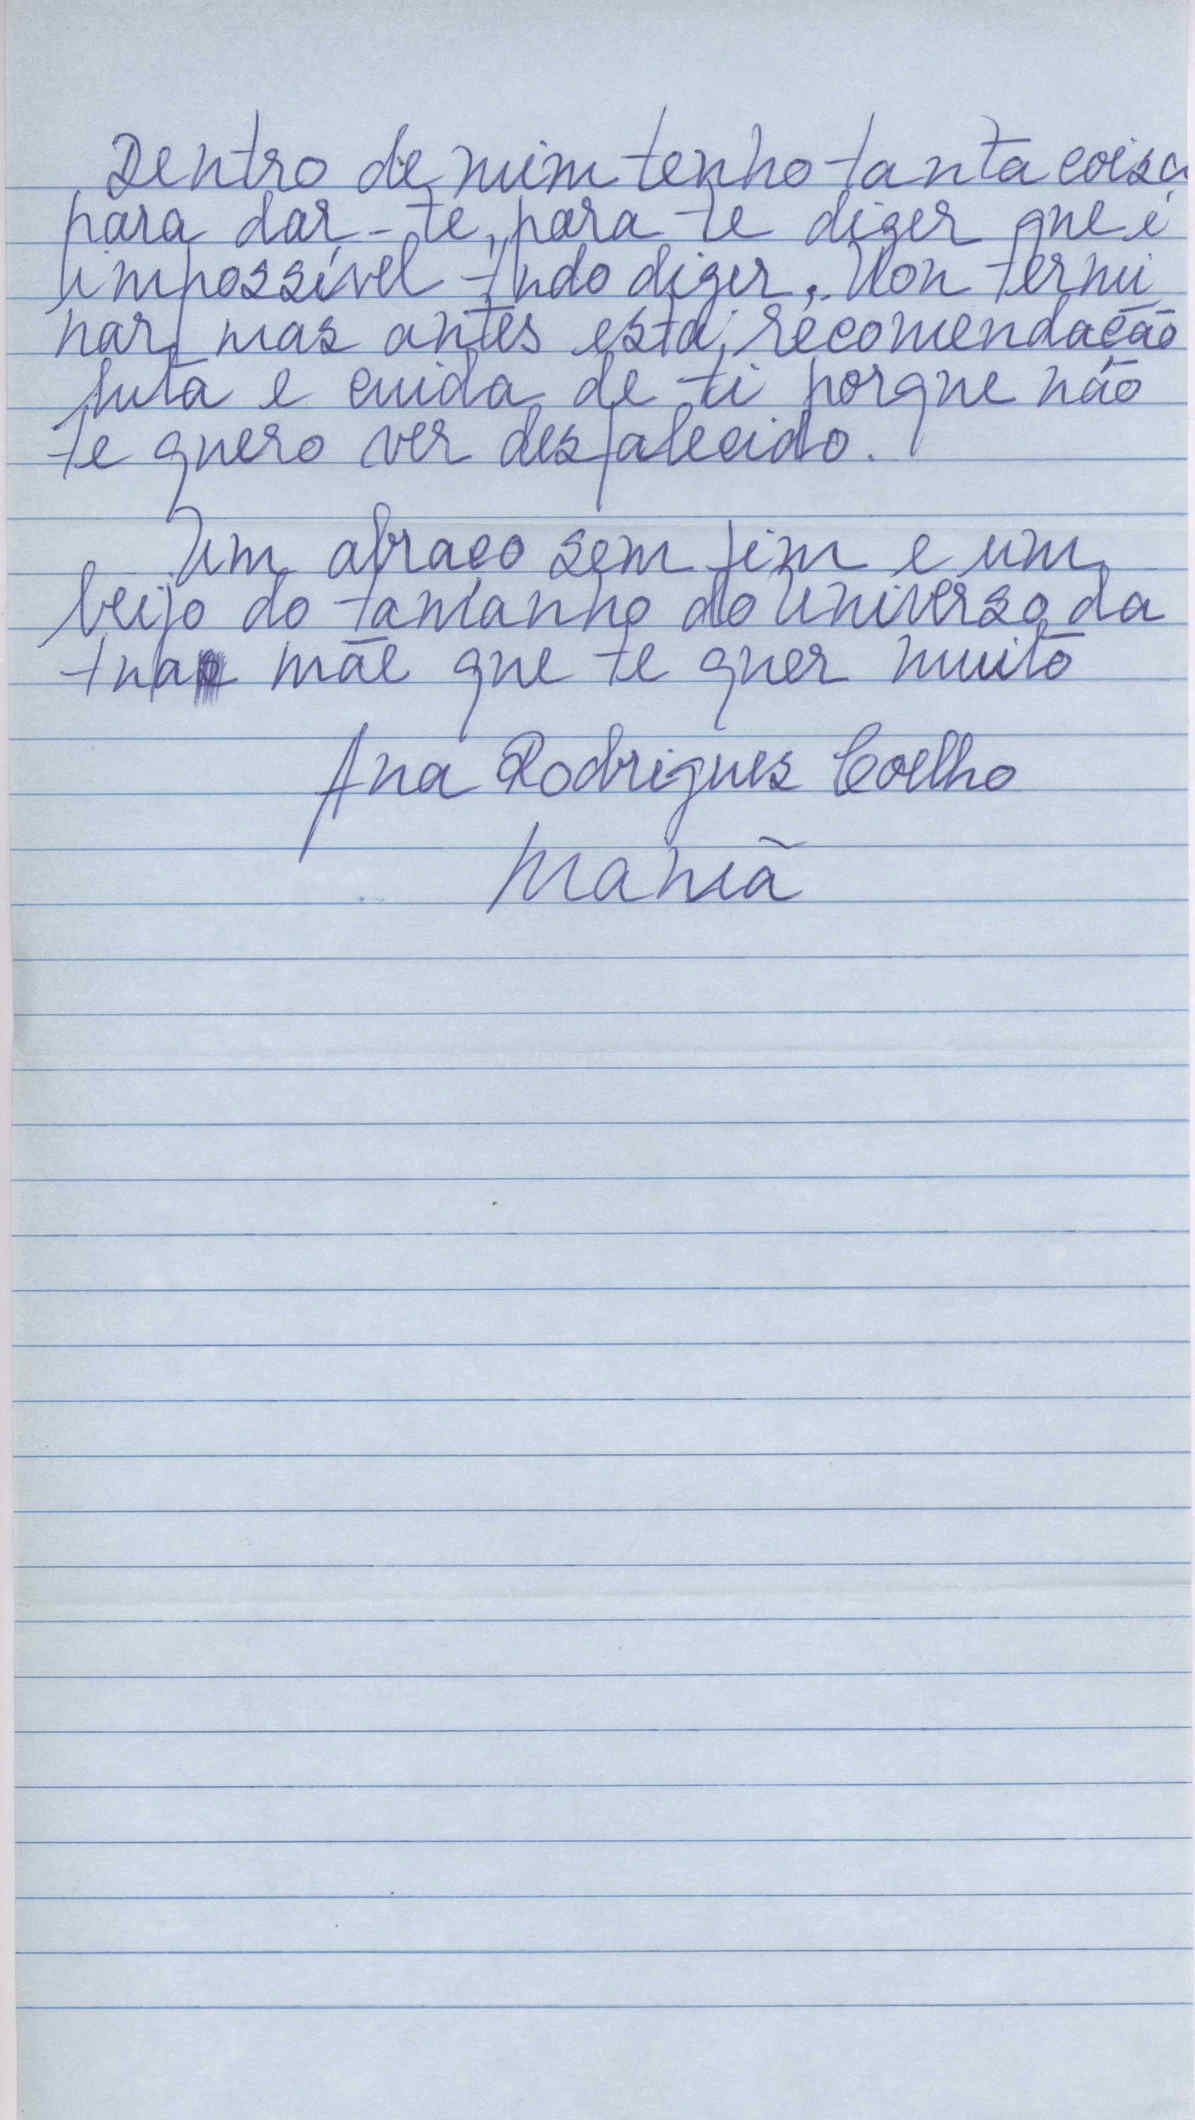 Dentro de mim tenho tanta coisa
para dar-te, para te dizer que é
impossível tudo dizer. Vou termi
nar, mas antes esta, recomendação
luta e cuida de ti porque não
te quero ver desfalecido.
Um abraço sem fim e um
beijo do tamanho do universo da
tua mãe que te quer muito
Ana Rodrigues Coelho
Mamã